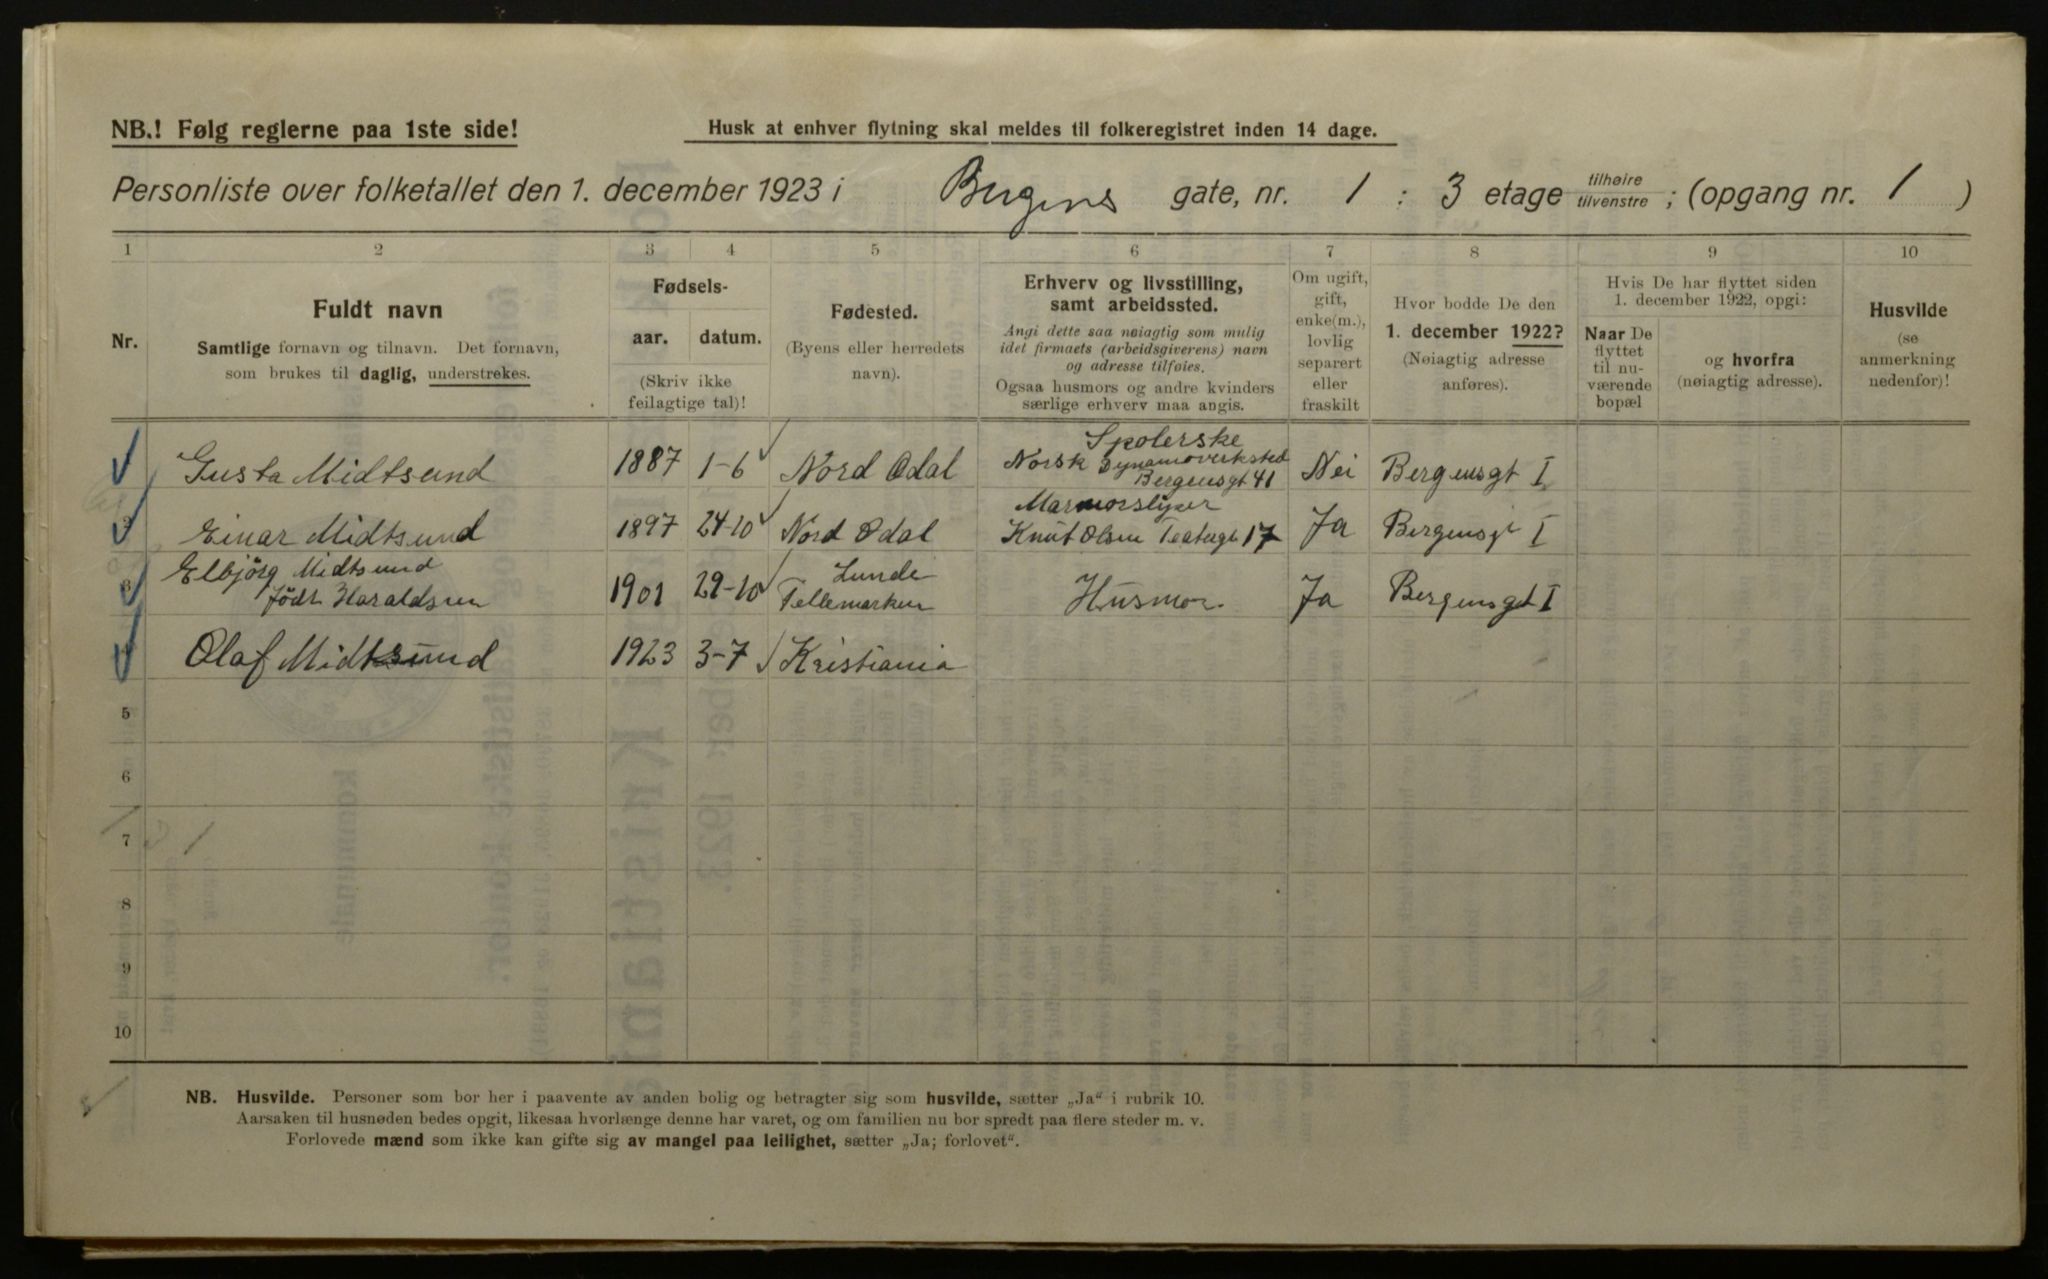 NB.! Følg reglerne paa 1ste side!
Husk at enhver flytning skal meldes til folkeregistret inden 14 dage.
Personliste over folketallet den 1. december 1923 i Bergens gate, nr. 1 : 3 etage tilhøire tilvenstre ; (opgang nr. 1 )
1 2 3 4 5 6 7 8 9 10
Nr.
Fuldt navn
Samtlige fornavn og tilnavn. Det fornavn,
som brukes til daglig, understrekes.
Fødsels-
aar. datum.
(Skriv ikke
feilagtige tal)!
Fødested.
(Byens eller herredets
navn).
Erhverv og livsstilling,
samt arbeidssted.
Angi dette saa nøiagtig som mulig
idet firmaets (arbeidsgiverens) navn
og adresse tilføies.
Ogsaa husmors og andre kvinders
særlige erhverv maa angis.
Om ugift,
gift,
enke(m.),
lovlig
separert
eller
fraskilt
Hvor bodde De den
1. december 1922?
(Nøiagtig adresse
anføres).
Hvis De har flyttet siden
1. december 1922, opgi:
Naar De
flyttet
til nu-
værende
bopæl
og hvorfra
(nøiagtig adresse).
Husvilde
(se
anmerkning
nedenfor)!
Spolerske
Gusta Midtsund 1887 1-6 Nord Odal Norsk Dynamoverksted Nei Bergensgt I
Bergensgt 41
Marmorsliper
Einar Midtsund 1897 24-10 Nord Odal Knut Olsen 17 Ja Bergensgt I
Elbjörg Midtsund Lunde
födt Haraldsen 1901 29-10 Tellemarken Husmor. Ja Bergensgt I
Olaf Midtsund 1923 3-7 Kristiania
5
6
7
8
9
10
NB. Husvilde. Personer som bor her i paavente av anden bolig og betragter sig som husvilde, sætter „Ja“ i rubrik 10.
Aarsaken til husnøden bedes opgit, likesaa hvorlænge denne har varet, og om familien nu bor spredt paa flere steder m. v.
Forlovede mænd som ikke kan gifte sig av mangel paa leilighet, sætter „Ja; forlovet“.